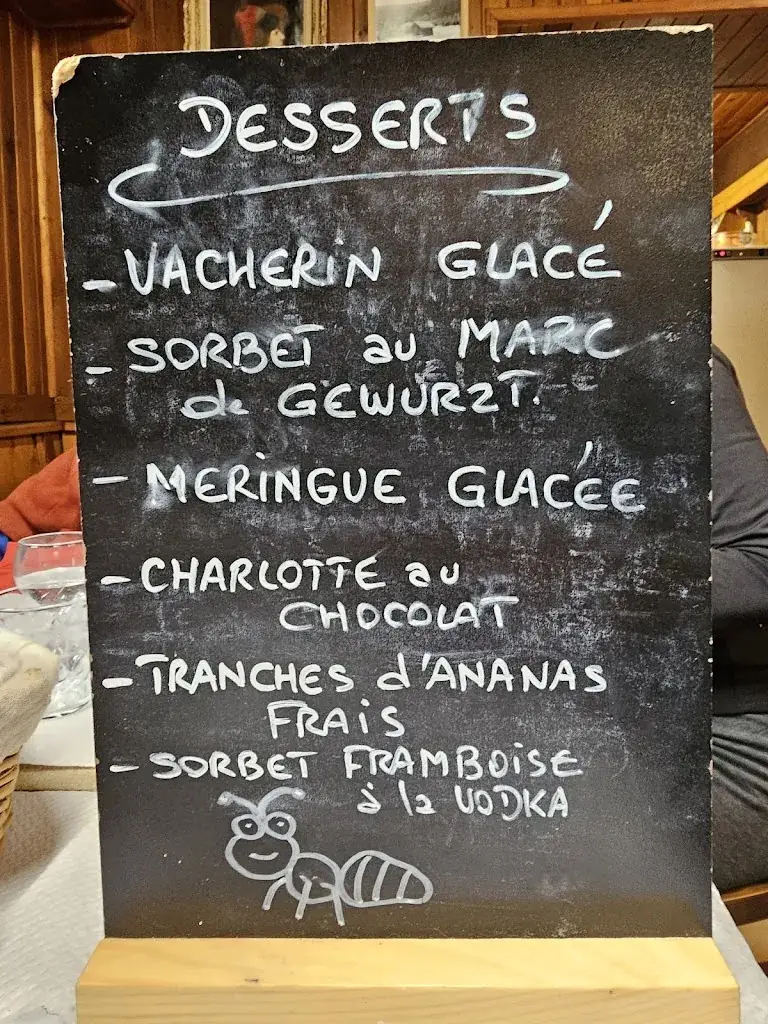 DESSERTS
- VACHERIN GLACÉ
- SORBET au MARC
de GEWURZT.
- MERINGUE GLACÉE
- CHARLOTTE au
CHOCOLAT
- TRANCHES d'ANANAS
FRAIS
- SORBET FRAMBOISE
à la VODKA